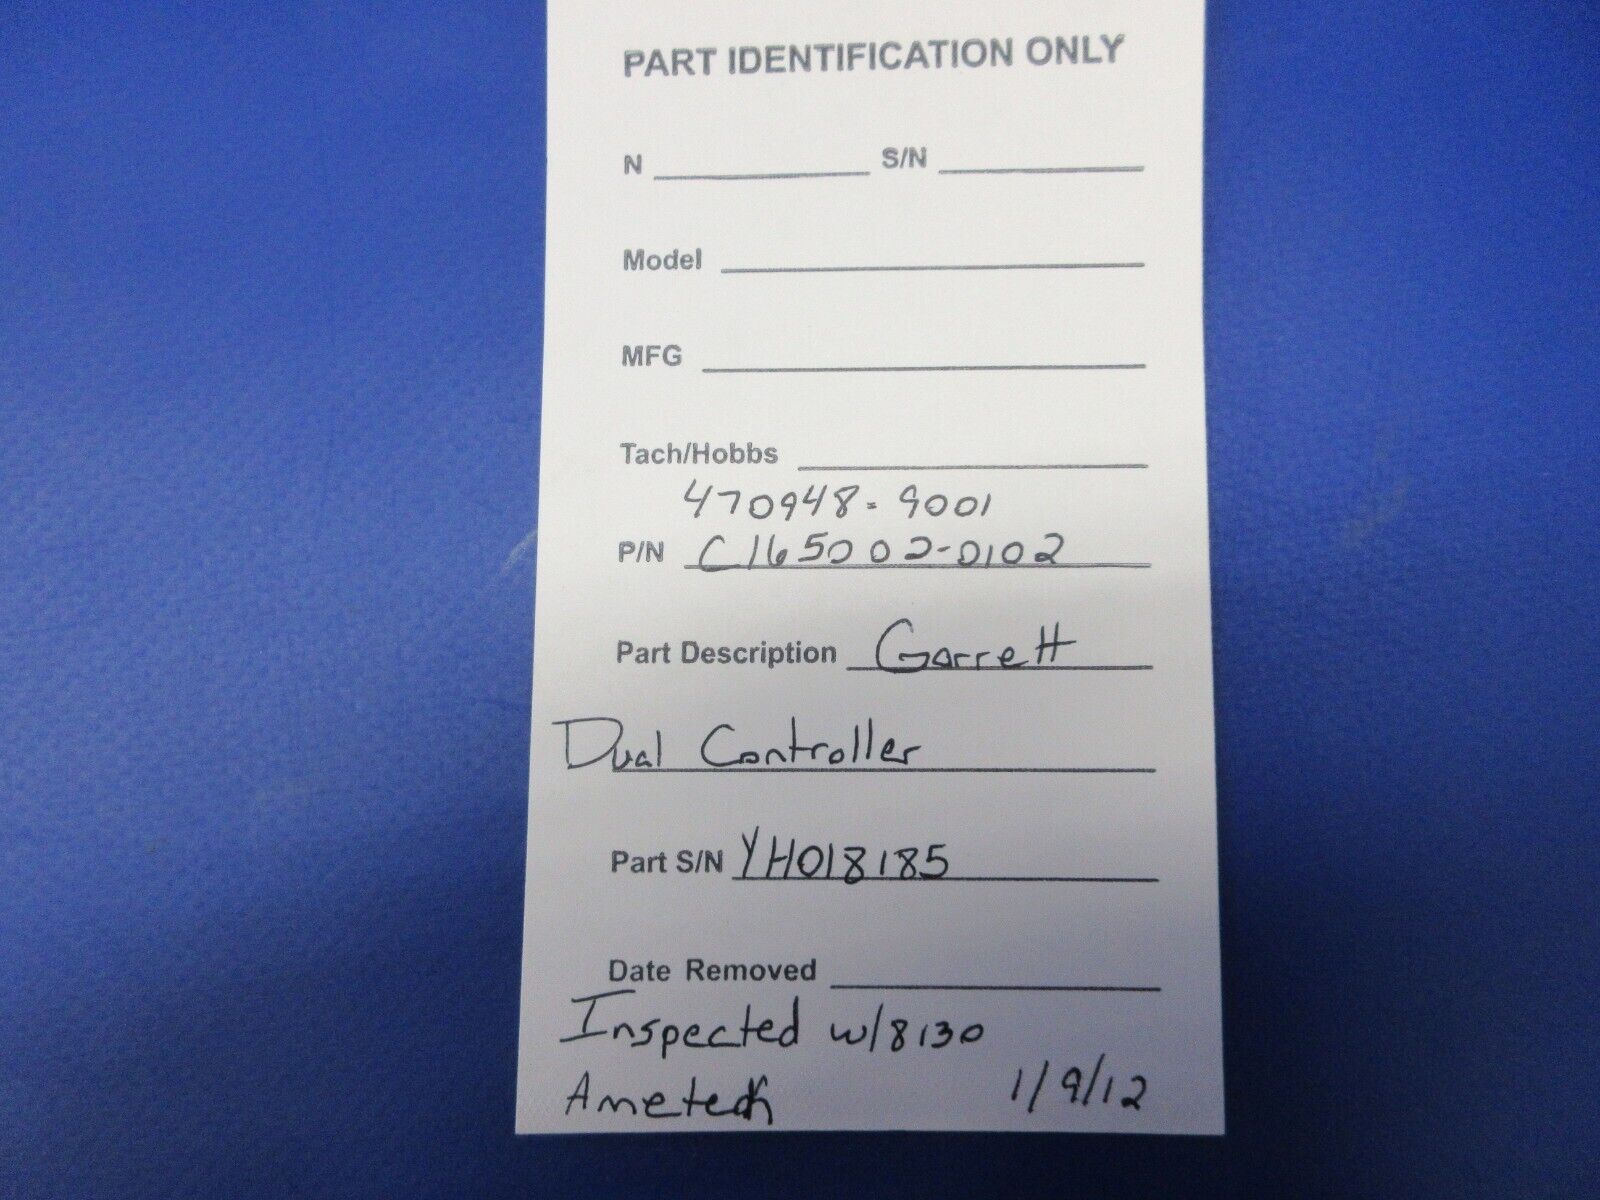 PART IDENTIFICATION ONLY
N S/N
Model
MFG
Tach/Hobbs
470948-9001
P/N C165002-0102
Part Description Garrett
Dual Controller
Part S/N YH018185
Date Removed
Inspected w/8130
Ametech 1/9/12